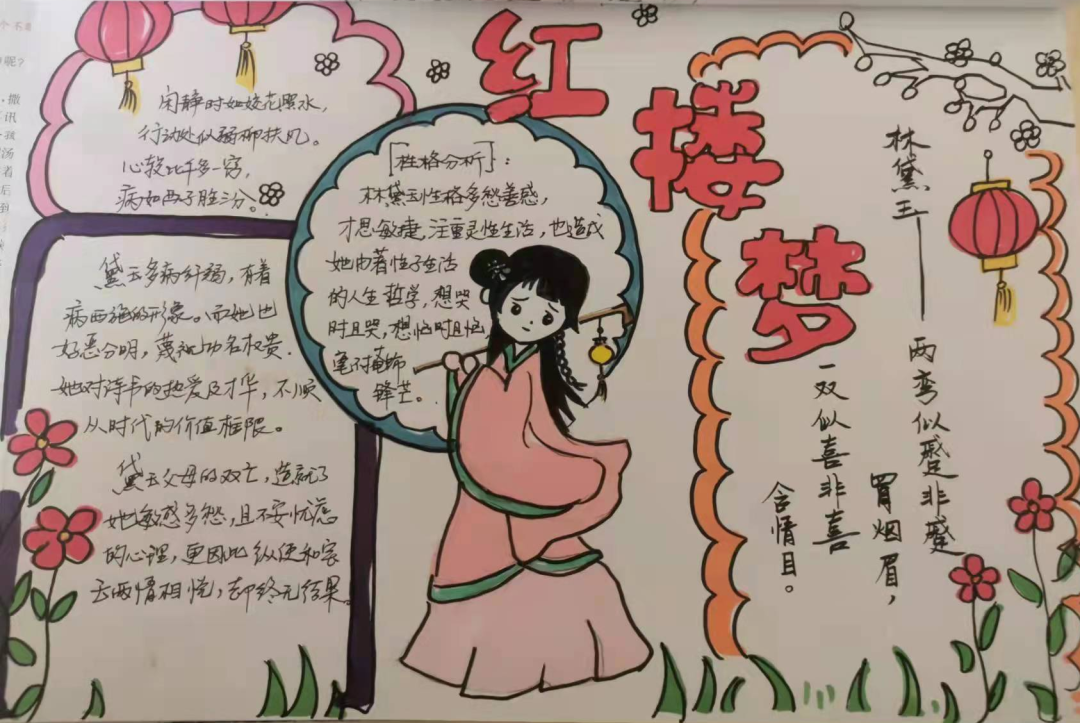 红楼梦
闲静时如姣花照水，
行动处似弱柳扶风。
心较比干多一窍，
病如西子胜三分。
[性格分析]：
林黛玉性格多愁善感，
才思敏捷，注重灵性生活，也造成
她由着性子生活
的人生哲学，想哭
时且哭，想恼时且恼
毫不掩饰
锋芒。
黛玉多病纤弱，有着
病西施的形像。而她也
好恶分明，蔑视功名权贵.
她对诗书的热爱及才华，不顺
从时代的价值框限。
黛玉父母的双亡，造就了
她敏感多愁，且不安忧虑
的心理，更因此纵使和宝
玉两情相悦，却终无结果。
林黛玉——
两弯似蹙非蹙
罥烟眉，
一双似喜非喜
含情目。